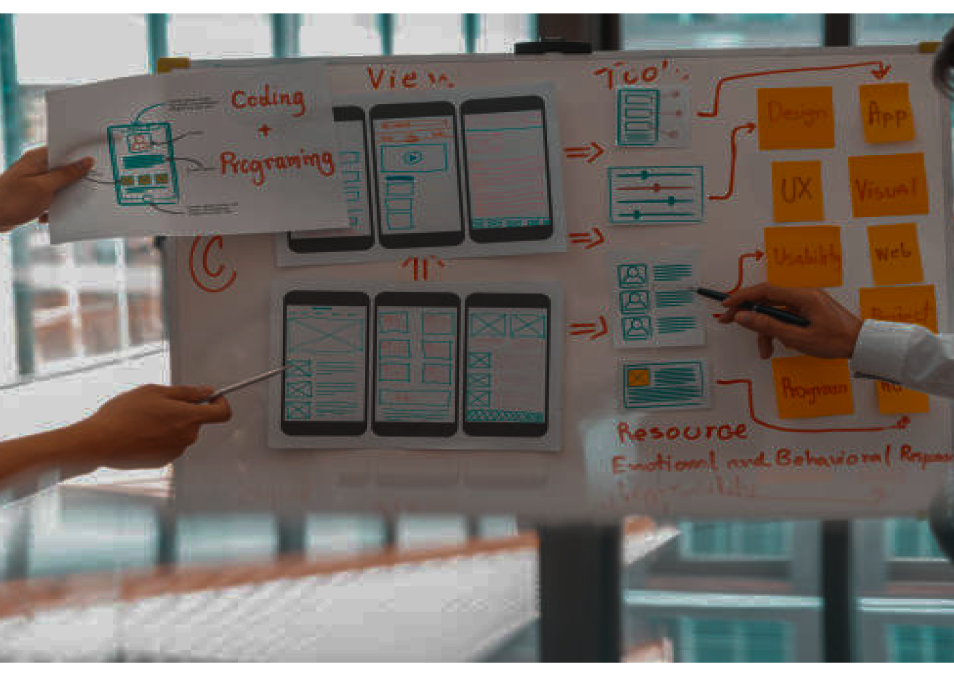 Coding
+
Programing
View
C
Design
App
UX
Visual
Usability
Web
Program
Resource
Emotional and Behavioral